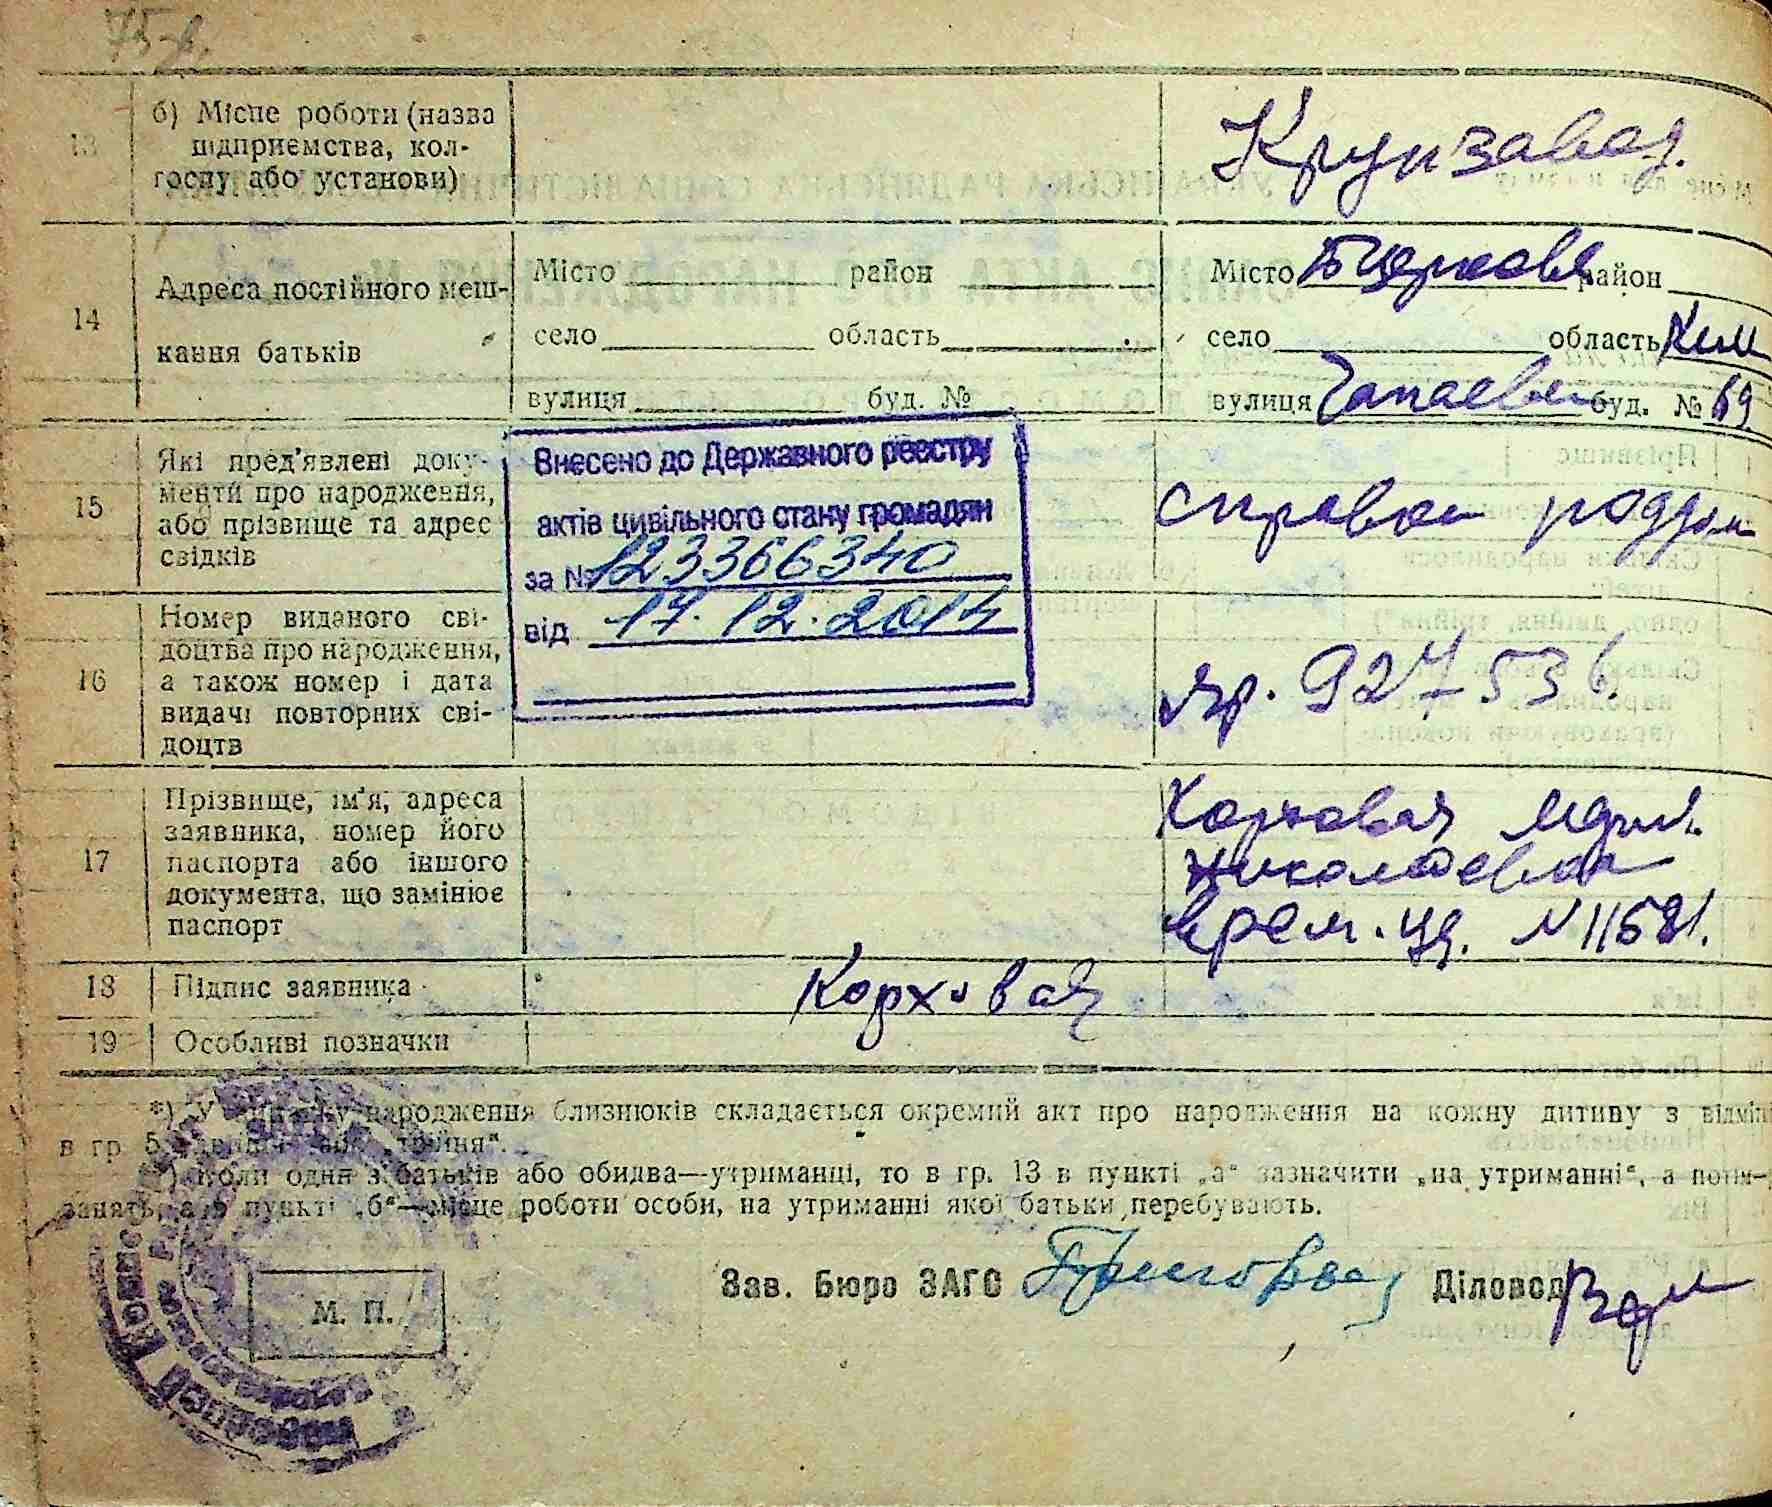 75-в.
13 б) Місце роботи (назва підприємства, кол-госпу або установи) Крупзавод.
14 Адреса постійного меш-кання батьків
Місто район
село область
вулиця буд. №
Місто Б Церковь район
село область Киев
вулиця Чапаева буд. № 69
15 Які пред'явлені доку-менти про народження, або прізвище та адрес свідків
справка роддом
Внесено до Державного реєстру
актів цивільного стану громадян
за № 123366340
від 17.12.2014
16 Номер виданого сві-доцтва про народження, а також номер і дата видачі повторних сві-доцтв
яр. 927536.
17 Прізвище, ім'я, адреса заявника, номер його паспорта або іншого документа, що замінює паспорт
Корховая Мария
Николаевна
врем. уд. №
18 Підпис заявника Корховая
19 Особливі позначки
*) У випадку народження близнюків складається окремий акт про народження на кожну дитину з
в гр 5 або „трійня“.
Коли один з батьків або обидва—утриманці, то в гр. 13 в пункті „а“ зазначити „на утриманні“, а
пункті „б“—місце роботи особи, на утриманні якої батьки перебувають.
Зав. Бюро ЗАГС Діловод
М. П.